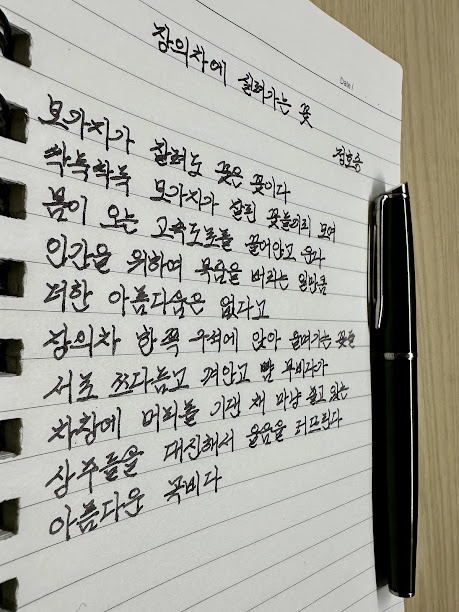 장의차에 실려가는 꽃
Date /
정호승
모가지가 잘려도 꽃은 꽃이다
싹둑싹둑 모가지가 잘린 꽃들끼리 모여
봄이 오는 고속도로를 끌어안고 운다
인간을 위하여 목숨을 버리는 일만큼
더한 아름다움은 없다고
장의차 한쪽 구석에 앉아 울며가는 꽃들
서로 쓰다듬고 껴안고 뺨 부비다가
차창에 머리를 기댄 채 마냥 졸고 있는
상주들을 대신해서 울음을 터뜨린다
아름다운 곡비다